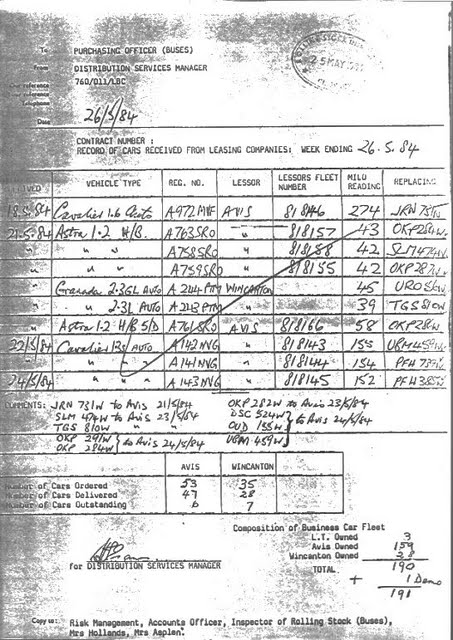 To PURCHASING OFFICER (BUSES)
From DISTRIBUTION SERVICES MANAGER
Our reference 760/011/LBC
Telephone
Date 26/5/84
25 MAY
CONTRACT NUMBER :
RECORD OF CARS RECEIVED FROM LEASING COMPANIES: WEEK ENDING 26.5.84
VEHICLE TYPE REG. NO. LESSOR LESSORS FLEET NUMBER MILO READING REPLACING
18.5.84 Cavalier 1.6 Auto A972 AVIS 818846 274 JRN
21.5.84 Astra 1.2 H/B. A763SRO " 818157 43 OKP284W
" " " A758SRO " 818158 42 SLM474W
" " " A759SRO " 818155 42 OKP
" Granada 2.3GL AUTO A244PTM WINCANTON 45 URO
" " 2.3L AUTO A243PTM " 39 TGS810W
" Astra 1.2 H/B 5/D A761SRO AVIS 818166 58 OKP28
22/5/84 Cavalier AUTO A142NVG " 818143 155 UBM459W
" " " A141NVG " 818144 154 PFH
24/5/84 " " A143NVG " 818145 152 PFH
COMMENTS: JRN 731W to Avis 21/5/84 OKP 282W to Avis 23/5/84
SLM 474W to Avis 23/5/84 DSC 524W } to Avis 24/5/84
TGS 810W " " OUD 155W
OKP 291W } to Avis 24/5/84 UBM 459W
OKP 284W
AVIS WINCANTON
Number of Cars Ordered 53 35
Number of Cars Delivered 47 28
Number of Cars Outstanding 6 7
Composition of Business Car Fleet
L.T. Owned 3
Avis Owned 159
Wincanton Owned 28
TOTAL 190
+ 1 Demo
191
for DISTRIBUTION SERVICES MANAGER
Copy to: Risk Management, Accounts Officer, Inspector of Rolling Stock (Buses),
Mrs Hollands, Mrs Asplen.